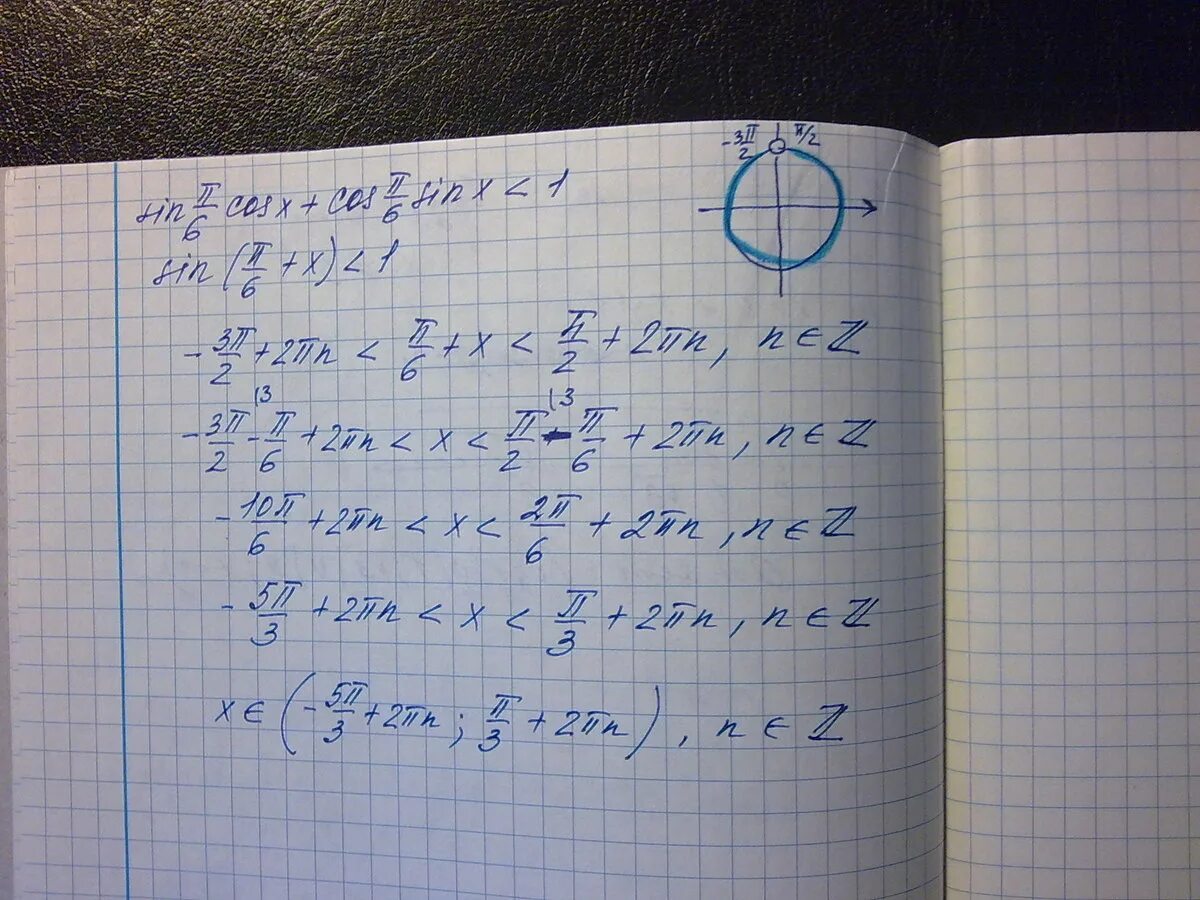 -3π/2 π/2
sin π/6 cos x + cos π/6 sin x < 1
sin (π/6 + x) < 1
-3π/2 + 2πn < π/6 + x < π/2 + 2πn, n ∈ ℤ
(3 (3
-3π/2 - π/6 + 2πn < x < π/2 - π/6 + 2πn, n ∈ ℤ
-10π/6 + 2πn < x < 2π/6 + 2πn, n ∈ ℤ
-5π/3 + 2πn < x < π/3 + 2πn, n ∈ ℤ
x ∈ (-5π/3 + 2πn ; π/3 + 2πn), n ∈ ℤ